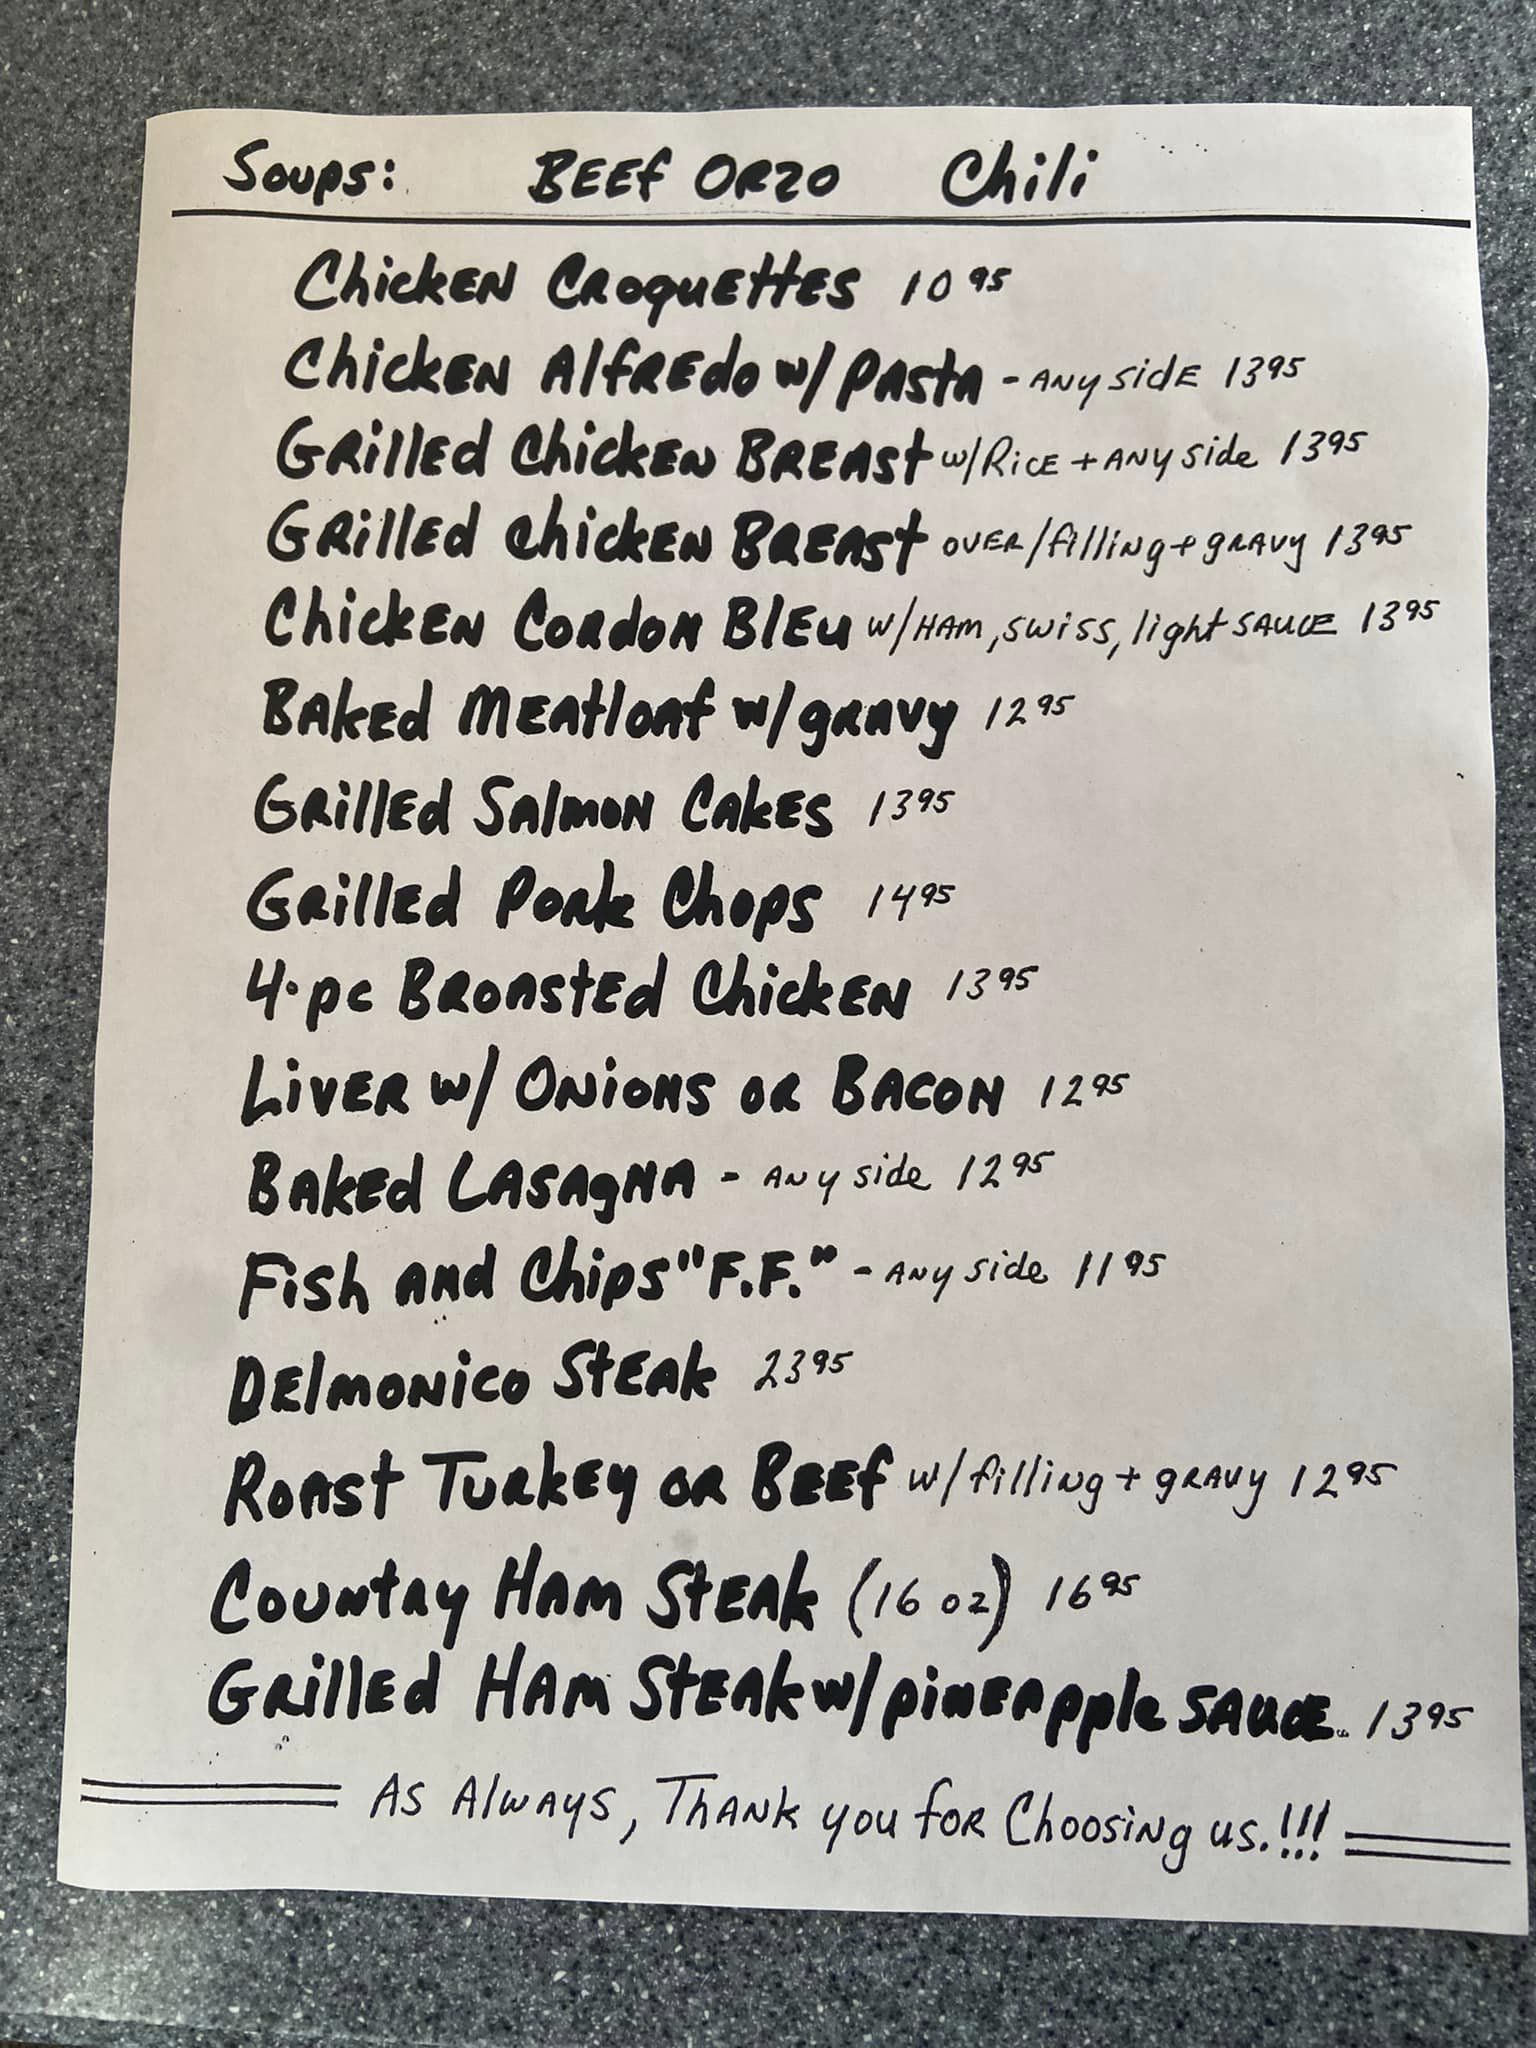 Soups: Beef Orzo Chili
Chicken Croquettes 10 95
Chicken Alfredo w/ Pasta - Any side 13 95
Grilled Chicken Breast w/Rice + Any side 13 95
Grilled Chicken Breast over/filling + gravy 13 95
Chicken Cordon Bleu w/Ham, swiss, light sauce 13 95
Baked Meatloaf w/gravy 12 95
Grilled Salmon Cakes 13 95
Grilled Pork Chops 14 95
4-pc Broasted Chicken 13 95
Liver w/ Onions or Bacon 12 95
Baked Lasagna - Any side 12 95
Fish and Chips "F.F." - Any side 11 95
Delmonico Steak 23 95
Roast Turkey or Beef w/ filling + gravy 12 95
Country Ham Steak (16 oz) 16 95
Grilled Ham Steak w/pineapple Sauce 13 95
As Always, Thank you for Choosing us.!!!